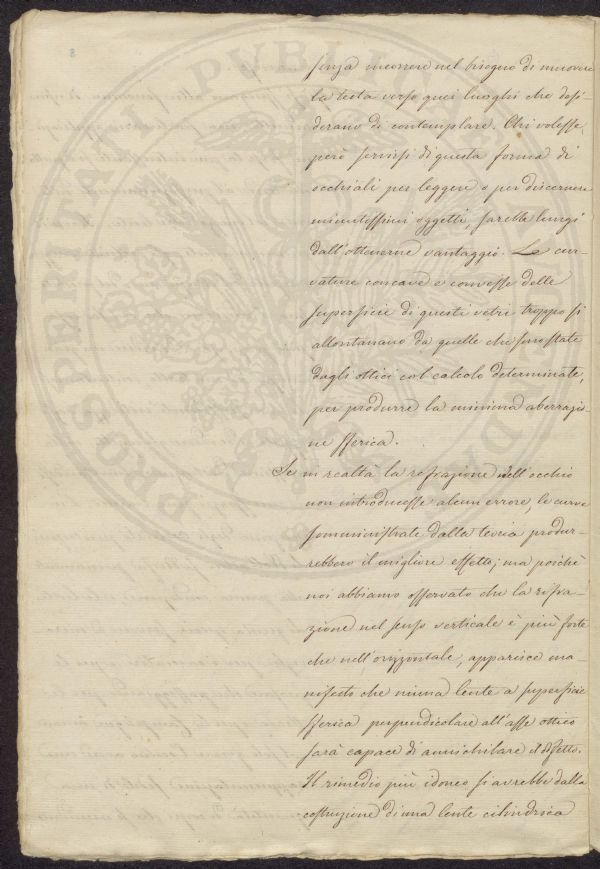 senza incorrere nel bisogno di muovere
la testa verso quei luoghi che desi-
derano di contemplare. Chi volesse,
però servirsi di questa forma di
occhiali per leggere o per discernere
minutissimi oggetti, sarebbe lungi
dall'ottenerne vantaggio. Le cur-
vature concave e convesse delle
superficie di questi vetri troppo si
allontanano da quelle che sono state
dagli ottici col calcolo determinate,
per produrre la minima aberrazio-
ne sferica.
Se in realtà la refrazione dell'occhio
non introducesse alcun errore, le curve
somministrate dalla teoria produr-
rebbero il migliore effetto; ma poichè
noi abbiamo osservato che la refra-
zione nel senso verticale è più forte
che nell'orizzontale, apparisce ma-
nifesto che niuna lente a superficie
sferica perpendicolare all'asse ottico
sarà capace di annichilare il difetto.
Il rimedio più idoneo si avrebbe dalla
costruzione di una lente cilindrica
PROSPERITATI PUBLI